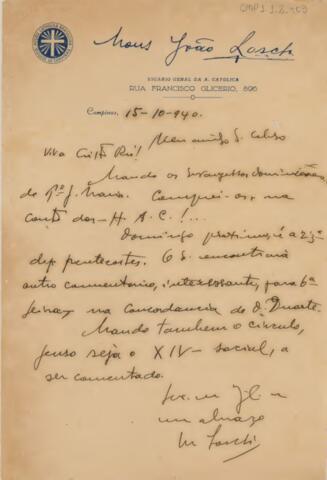 CMP1.1.8.469
Mons João Loschi
VIGARIO GERAL DA A. CATOLICA
RUA FRANCISCO GLICERIO, 896
Campinas, 15-10-940.
Meu amigo S. Celso
Viva Cristo Rei!
Mando os Evangelhos dominicais
do Pe. J. Maria. Comprei-os, na
conta dos - H. A. C.! ...
Domingo proximo, é a 23ª
dep. pentecostes. O S. encontrará
outro comentario, interessante, para 6ª
feira, na Concordancia de D. Duarte.
Mando tambem o circulo,
penso seja o XIV - social, a
ser comentado.
um abraço
M Loschi